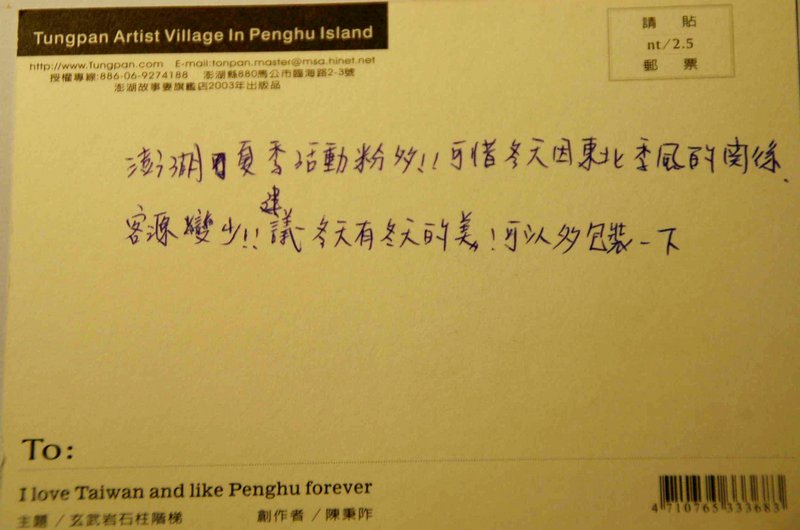 Tungpan Artist Village In Penghu Island
請 貼
nt/2.5
郵 票
http://www.Tungpan.com E-mail:tonpan.master@msa.hinet.net
授權專線:886-06-9274188 澎湖縣880馬公市臨海路2-3號
澎湖故事妻旗艦店2003年出版品
澎湖夏季活動粉多!!可惜冬天因東北季風的関係、
客源變少!!建議冬天有冬天的美!可以多包裝一下
To:
I love Taiwan and like Penghu forever
主題/玄武岩石柱階梯 創作者/陳秉阼
4 710765 333683